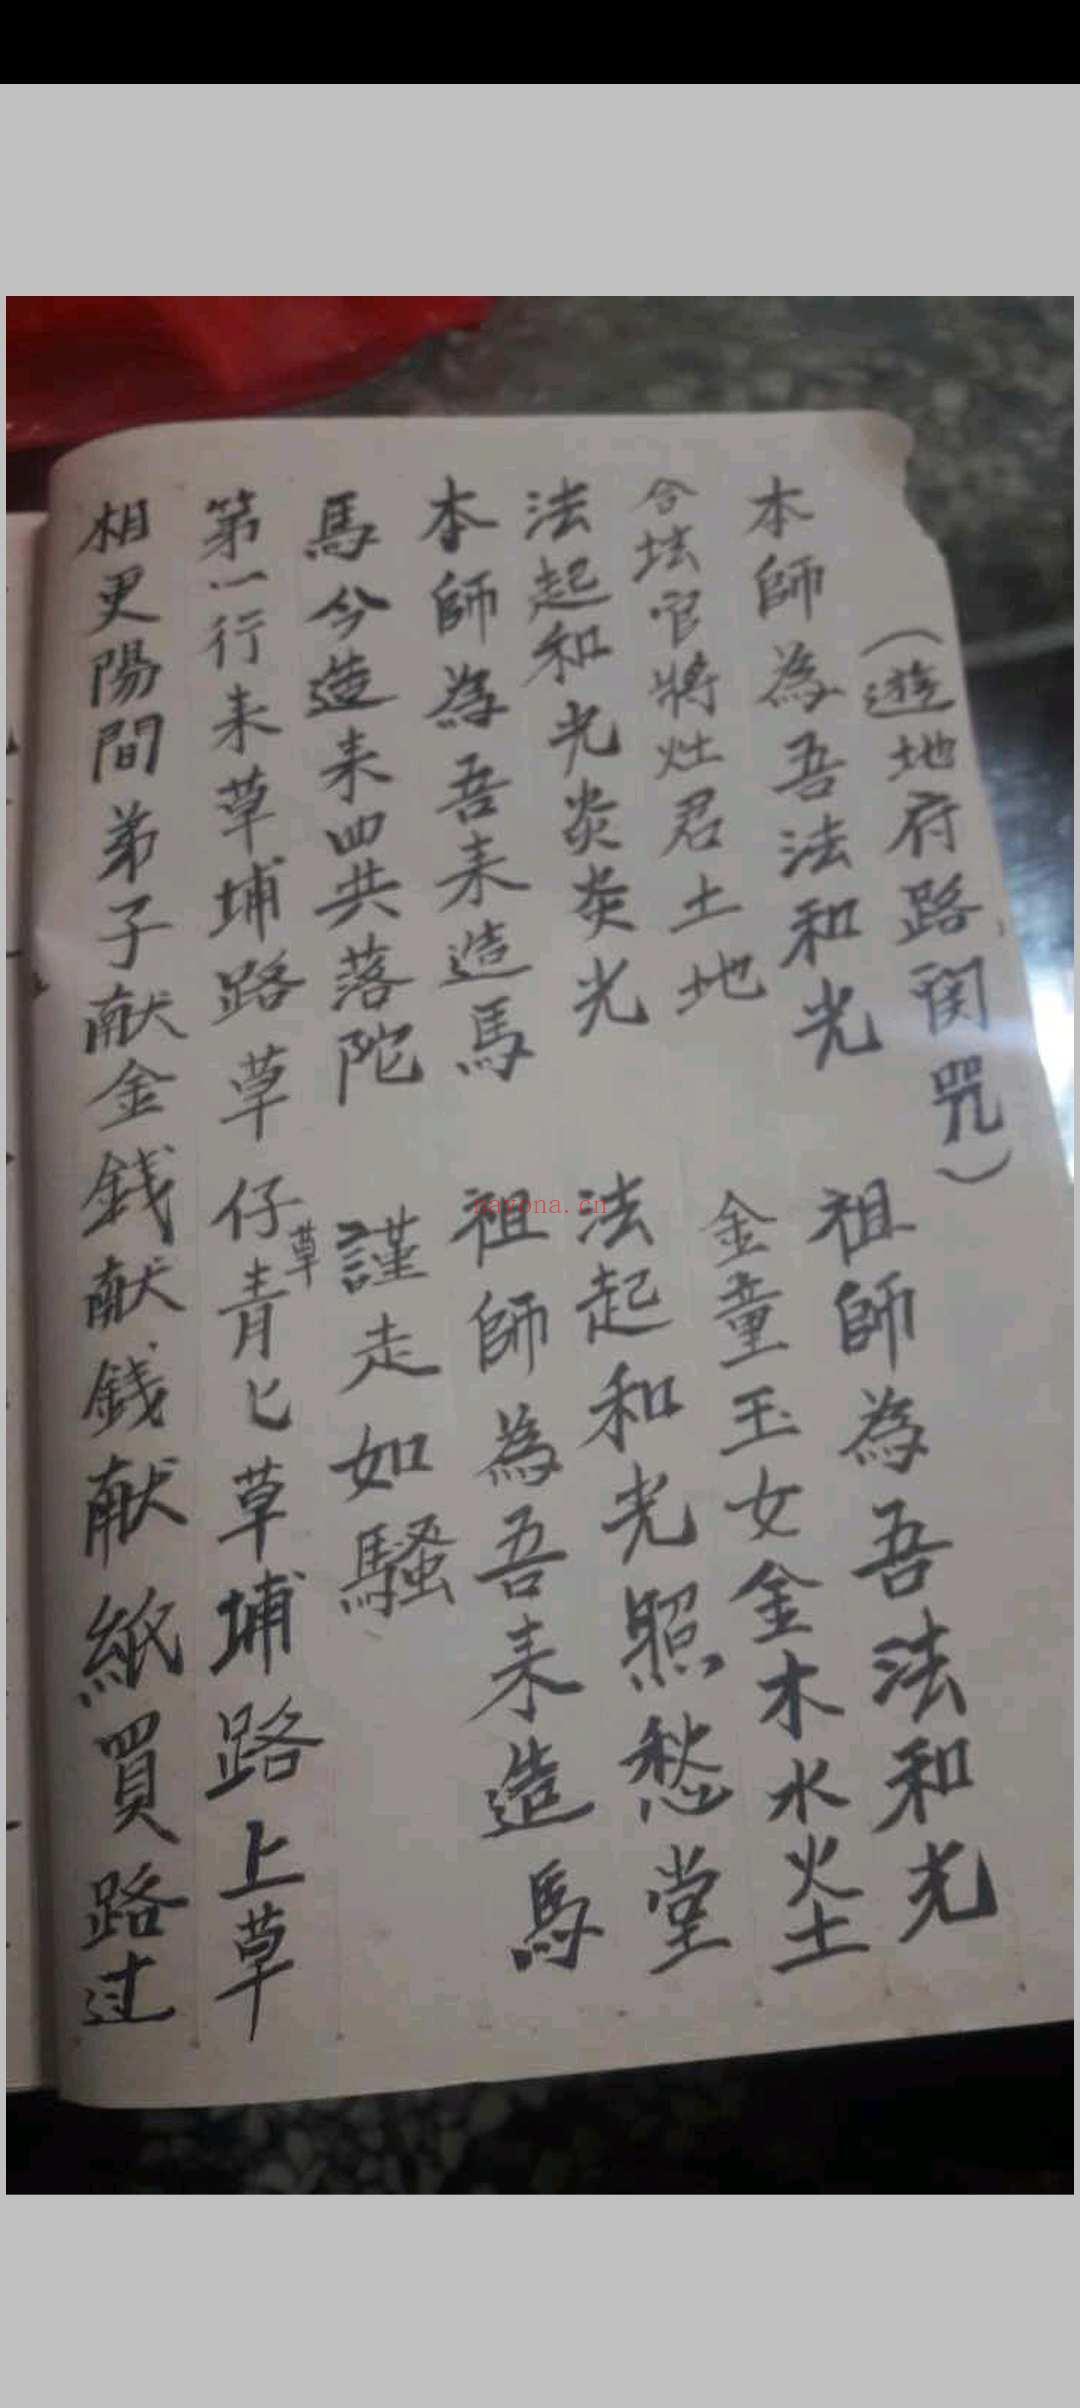 （遊地府路関咒）
本師為吾法和光　祖師為吾法和光
合坛官將灶君土地　金童玉女金木水火土
法起和光炎炎光　法起和光照愁堂
本師為吾来造馬　祖師為吾来造馬
馬今造来四共落陀　謹走如騷
第一行来草埔路草仔青匕草埔路上草
草
相更陽間弟子献金錢献錢献紙買路过
nayona.cn